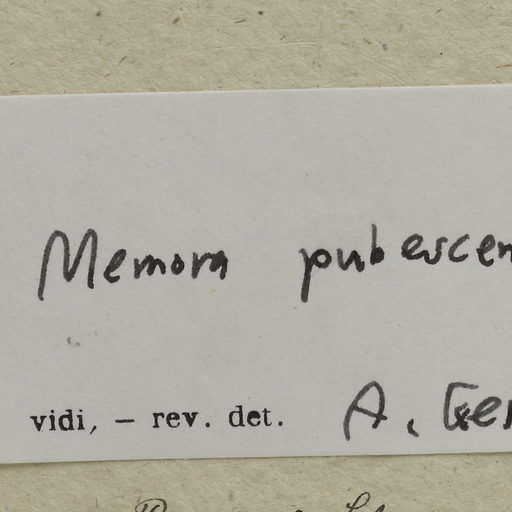 Memora pubescen
vidi, — rev. det. A. Gen